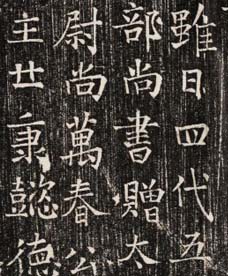 雖曰四代五
部尚書贈太
尉尚萬春公
主廿秉懿德